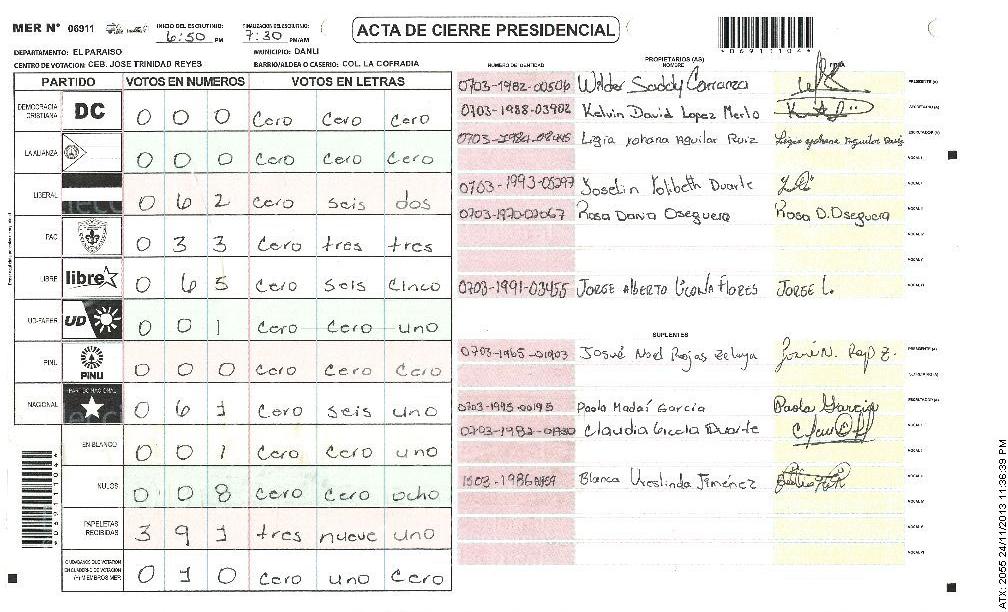 MER N° 06911
INICIO DEL ESCRUTINIO: 6:50 PM
FINALIZACION DEL ESCRUTINIO: 7:30 PM/AM
ACTA DE CIERRE PRESIDENCIAL
DEPARTAMENTO: EL PARAISO
MUNICIPIO: DANLI
CENTRO DE VOTACION: CEB. JOSE TRINIDAD REYES
BARRIO/ALDEA O CASERIO: COL. LA COFRADIA
PARTIDO VOTOS EN NUMEROS VOTOS EN LETRAS
DEMOCRACIA CRISTIANA DC 0 0 0 Cero Cero Cero
LA ALIANZA 0 0 0 Cero Cero Cero
LIBERAL 0 6 2 Cero seis dos
PAC 0 3 3 Cero tres tres
LIBRE libre 0 6 5 Cero seis Cinco
UD-FAPER UD 0 0 1 Cero Cero uno
PINU PINU 0 0 0 Cero Cero Cero
NACIONAL PARTIDO NACIONAL 0 6 1 Cero seis uno
EN BLANCO 0 0 1 Cero Cero uno
NULOS 0 0 8 Cero Cero ocho
PAPELETAS RECIBIDAS 3 9 1 tres nueve uno
CIUDADANOS QUE VOTARON EN CUADERNO DE VOTACION (+) MIEMBROS MER 0 1 0 Cero uno Cero
*06911104*
PROPIETARIOS (AS)
NUMERO DE IDENTIDAD NOMBRE Firma
0703-1982-00506 Wilder Saddy Carranza PRESIDENTE (A)
0703-1988-03902 Kelvin David Lopez Merlo SECRETARIO (A)
0703-1984-08445 Ligia Yohana Aguilar Ruiz Ligia Yohana Aguilar Ruiz ESCRUTADOR (A)
VOCAL I
0703-1993-05297 Yoselin Yolibeth Duarte
0703-1970-02067 Rosa Dania Oseguera Rosa D. Oseguera
0703-1991-03455 JORGE ALBERTO LICONA FLORES JORGE L.
SUPLENTES
0703-1965-01903 Josué Noel Rojas Zelaya PRESIDENTE (A)
SECRETARIO (A)
0703-1995-00195 Paola Madaí García Paola Garcia ESCRUTADOR (A)
Claudia Duarte
Blanca Jiménez
ATX: 2055 24/11/2013 11:36:39 PM